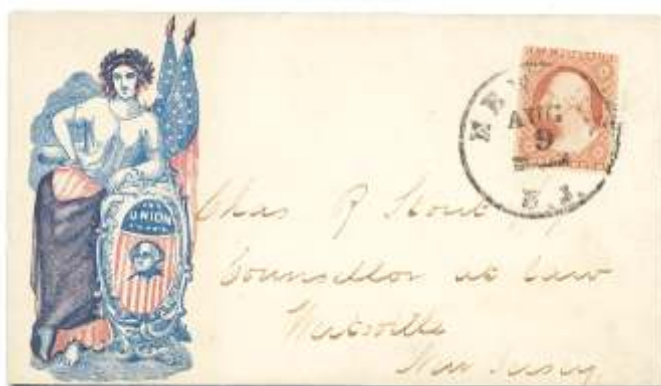 UNION
NEW
AUG
9
N.J.
Chas P Stout
Counsellor at Law
New Jersey